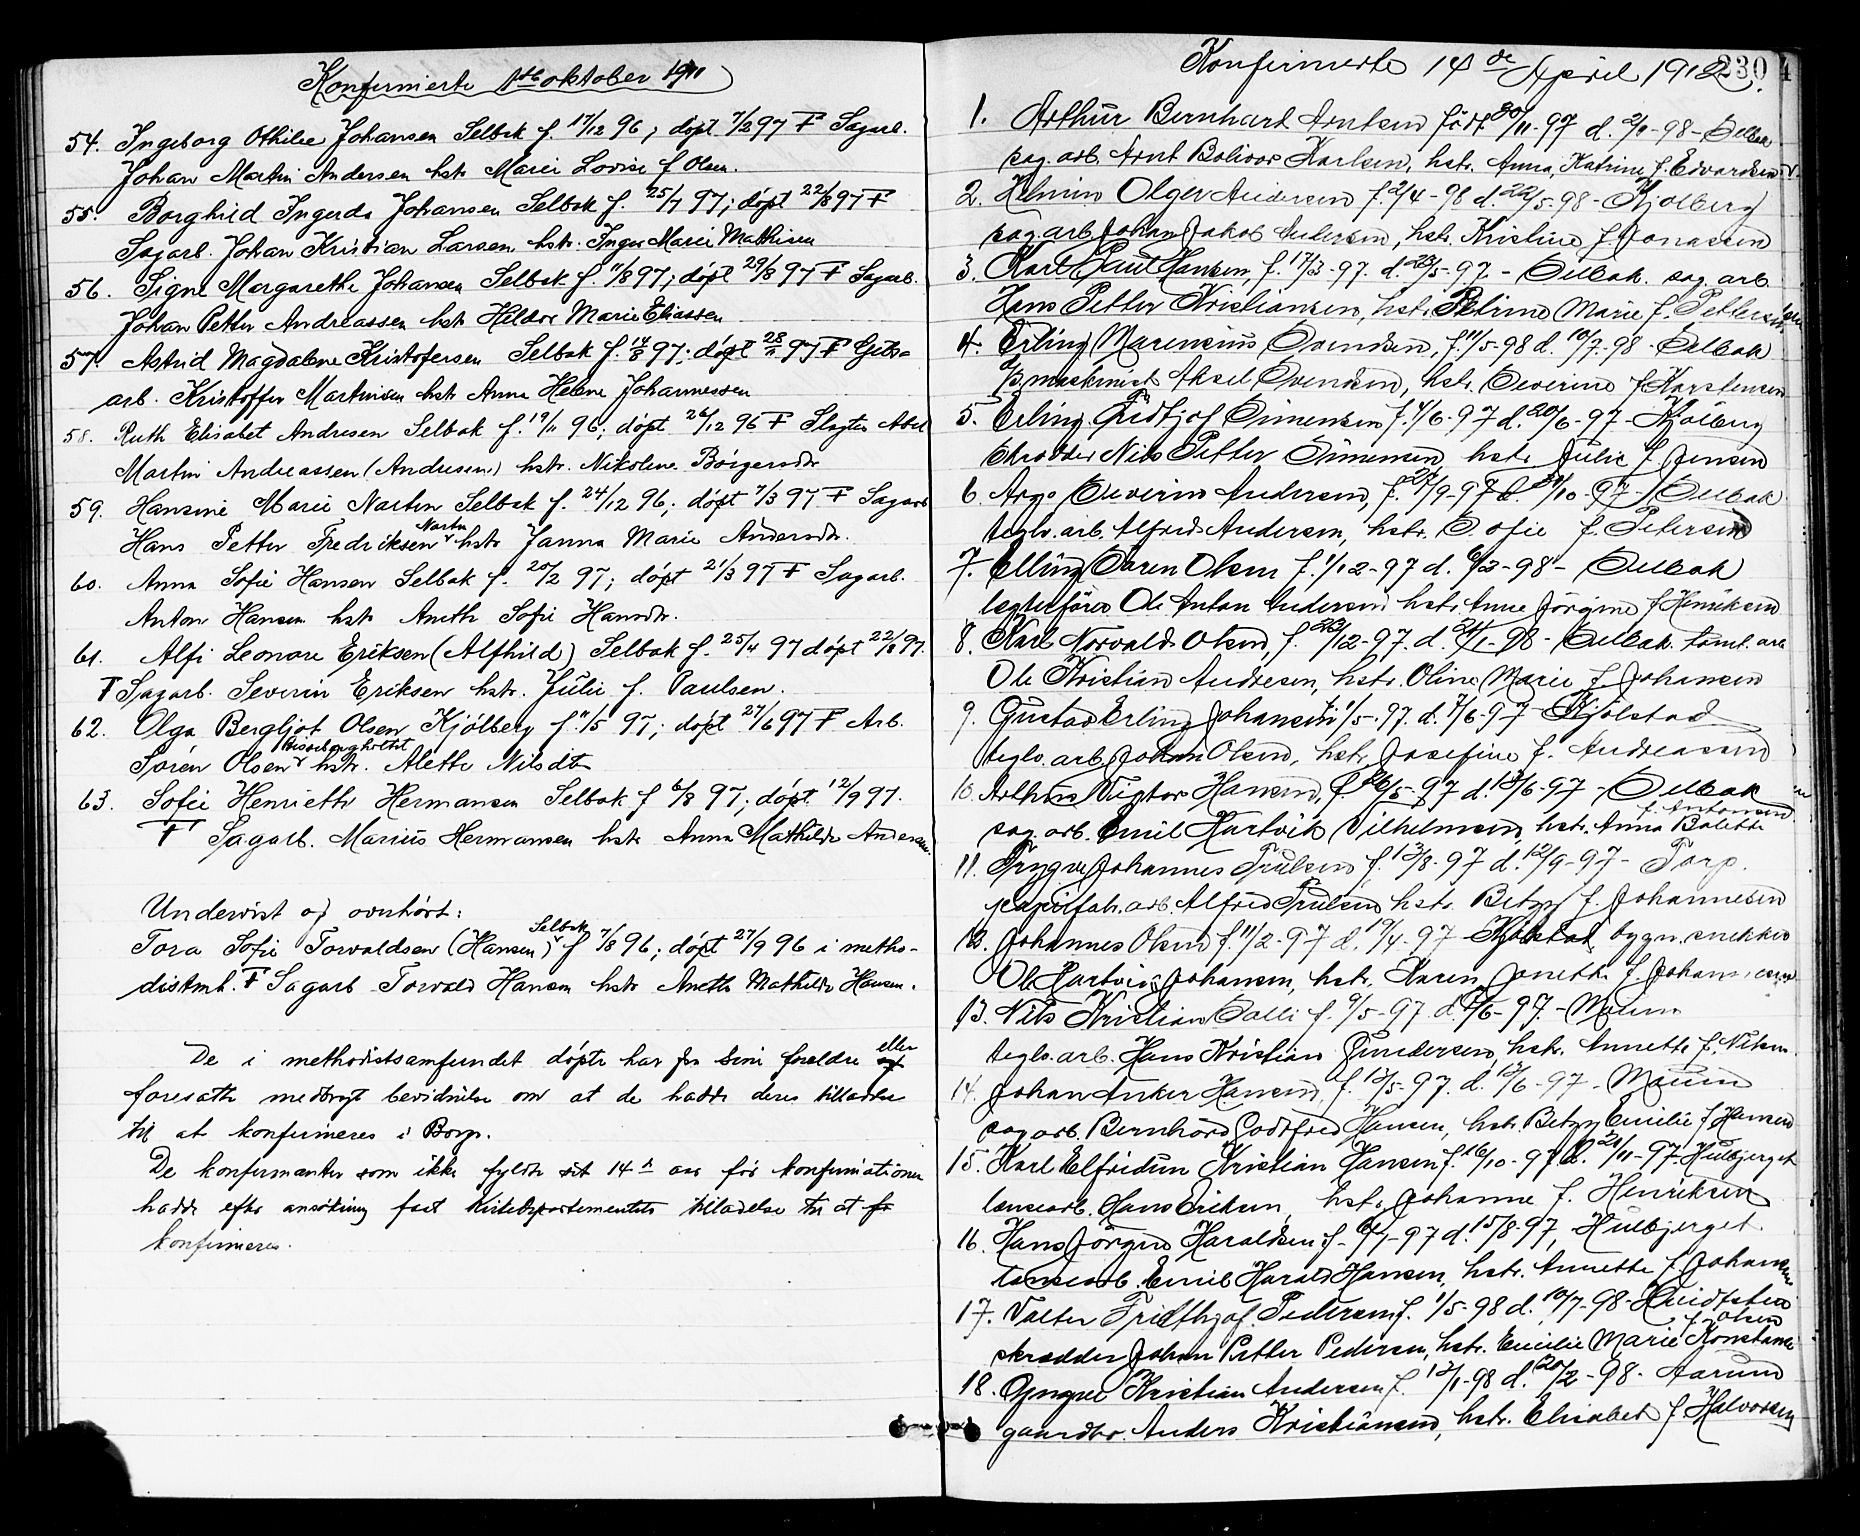 Konfirmerte 1ste oktober 1911
54. Ingeborg Othilie Johansen Selbak f. 17/12 96; døpt 7/2 97 F Sagarb.
Johan Martin Andersen hstr Marie Lovise f Olsen.
55. Borghild Ingerda Johansen Selbak f. 25/7 97; døpt 22/8 97 F
Sagarb. Johan Kristian Larsen hstr. Inger Marie Mathisen
56. Signe Margarethe Johansen Selbak f. 11/8 97; døpt 29/8 97 F Sagarb.
Johan Petter Andreassen hstr Hilda Marie Eliassen
57. Astrid Magdalene Kristofersen Selbak f. 97; døpt 28 97 F
arb. Kristoffer Martinsen hstr Anna Helene Johannessen
58. Ruth Elisabet Andresen Selbak f. 19/11 96; døpt 26/12 96 F Slagter Abel
Martin Andreassen (Andresen) hstr. Nikoline Børgersdtr
59. Hansine Marie Narten Selbak f. 24/12 96; døpt 7/3 97 F Sagarb
Hans Petter Fredriksen Narten hstr Janna Marie Andersdtr.
60. Anna Sofie Hansen Selbak f. 20/2 97; døpt 21/3 97 F Sagarb.
Anton Hansen hstr Aneth Sofie Hansdtr.
61. Alfi Leonore Eriksen (Alfhild) Selbak f. 25/4 97 døpt 22/8 97.
F Sagarb. Severin Eriksen hstr. Julie f. Paulsen.
62. Olga Bergljot Olsen Kjølberg f. 11/5 97; døpt 27/6 97 F Arb.
Søren Olsen hstr. Alette Nilsdtr
63. Sofie Henriette Hermansen Selbak f 6/8 97; døpt 12/9 97.
F Sagarb. Marius Hermansen hstr Anna Mathilde Andersen.
Undervist og overhørt:
Tora Sofie Torvaldsen (Hansen) Selbak f 7/8 96; døpt 27/9 96 i metho-
distmh. F Sagarb Torvald Hansen hstr Anette Mathilde Hansen.
De i methodistsamfundet døpte har fra sine foreldre eller
foresatte medbragt bevidnelse om at de hadde deres tilladelse
til at konfirmeres i Borge.
De konfirmanter som ikke fyldte sit 14de aar før konfirmationen
hadde efter ansøkning faat Kirkedepartementets tilladelse til at
konfirmeres.
Konfirmerte 14de April 1912. 230
1. Arthur Bernhart Arntsen født 30/11-97 d. 2/1-98 - Selbak
sag.arb. Arnt Bolivar Karlsen, hstr. Anna Katrine f. Edvardsen
2. Olger Andersen f. 2/4-98 d. 22/5-98 - Kjølberg
sag.arb Johan Jakob Andersen, hstr. Kristine f Jonassen
3. Karl Paul Hansen, f. 17/3-97. d. 23/5-97 - Selbak. sag. arb.
Hans Petter Kristiansen, hstr. Petrine Marie f. Pettersen
4. Erling Marensius Svendsen, f. 11/5-98 d. 10/7-98 - Selbak
maskinist Aksel Svendsen, hstr. Severine f Karstensen
5. Erling Fridtjof Simensen f. 4/6-97 d. 20/6-97 - Kjølberg
skrædder Nils Petter Simensen, hstr. Julie f Jensen
6. Severin Andersen, f. 27/9-97 d. 31/10-97 - Selbak
teglv.arb. Alfred Andersen, hstr. Sofie f. Petersen
7. Elling Søren Olsen f. 1/12-97 d. 6/2-98 - Selbak
lægterfører Ole Anton Andersen hstr. Anne Jørgine f Henriksen
8. Karl Norvald Olsen, f. 23/12-97. d. 24/1-98 - Selbak. tomt. arb
Ole Kristian Andresen, hstr. Oline Marie f Johansen
9. Gustav Erling Johansen f. 1/5-97. d. 7/6-97 - Kjølstad
teglv.arb Johan Olsen, hstr. Josefine f. Andreassen
10. Arthur Viktor Hansen, f. 26/5-97 d. 13/6-97 - Selbak
sag.arb. Emil Hartvik Vilhelmsen, hstr. Anna Bolette f. Antonsen
11. Trygve Johannes Trulsen f. 13/8-97 d. 12/9-97 - Torp.
papirfab.arb. Alfred Trulsen hstr. Betzy f. Johannesen
12. Johannes Olsen f. 11/2-97 d. 19/4-97 - Kjølstad, bygn.snekker
Ole Hartvig Johansen, hstr. Karen Janette f. Johannesen
13. Nils Kristian Salli f. 9/5-97 d. /6-97. - Moum
teglv.arb. Hans Kristian Gundersen, hstr. Annette f. Nilsen.
14. Johan Anker Hansen, f. 13/5-97. d. 13/6-97 - Moum
sag.arb. Bernhard Godtfred Hansen, hstr. Betzy Emilie f Hansen
15. Karl Elfridun Kristian Hansen f. 16/10-97 d. 21/11-97 - Huibjerget
lænsearb. Hans Eriksen, hstr. Johanne f. Henriksen
16. Hans Jørgen Haraldsen f - 6/7-97 d. 15/8-97, Huibjerget.
lænsearb. Emil Harald Hansen, hstr. Annette f Johansen
17. Valter Fridthjof Pedersen f. 1/5-98 d. 10/7-98 -
skrædder Johan Petter Pedersen, hstr. Emilie Marie Konstanse f. Olsen
18. Kristian Andersen f. 12/1-98 d. 20/2-98 - Aarum
gaardbr. Anders Kristiansen, hstr. Elisabet f Halvorsen